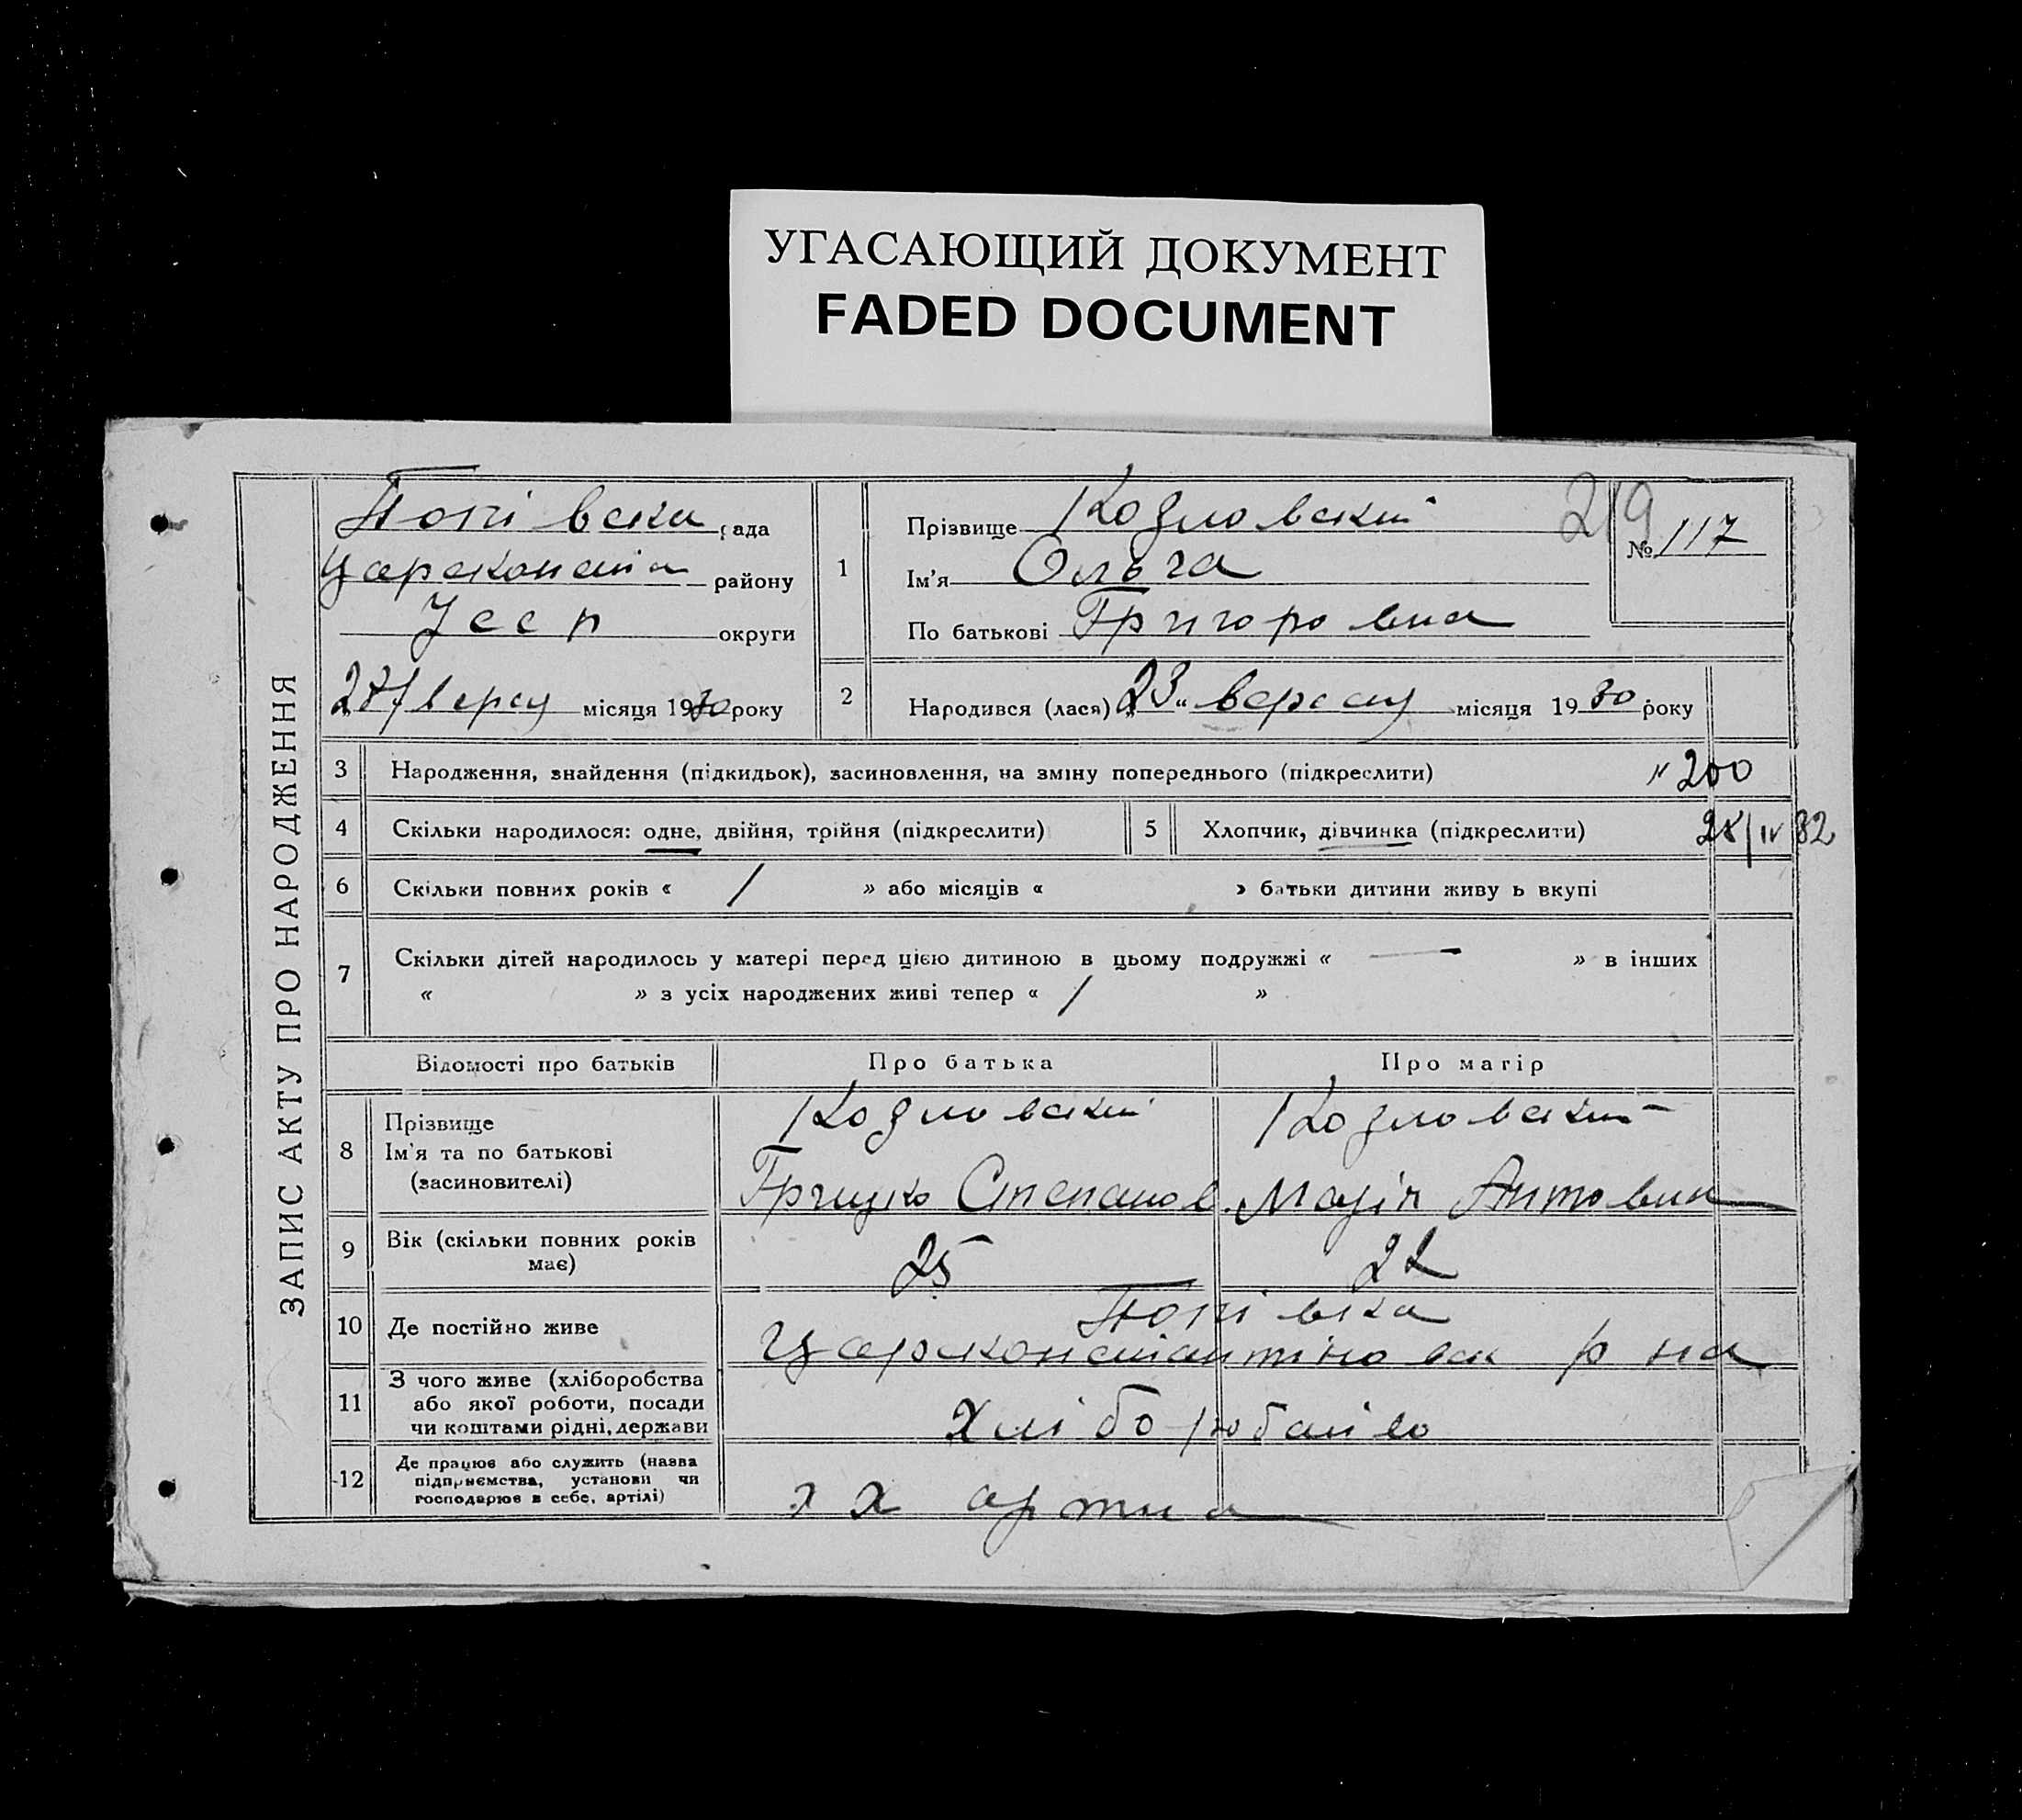 УГАСАЮЩИЙ ДОКУМЕНТ
FADED DOCUMENT
ЗАПИС АКТУ ПРО НАРОДЖЕННЯ
Попівська рада
Царсконстан району
Усср округи
місяця 1930 року
1
Прізвище Козловский
Ім'я Ольга
По батькові Григоровна
219
№ 117
2
Народився (лася) „23“ вересня місяця 1930 року
3 Народження, знайдення (підкидьок), засиновлення, на зміну попереднього (підкреслити) 200
4 Скільки народилося: одне, двійня, трійня (підкреслити) 5 Хлопчик, дівчинка (підкреслити) 28/IV 82
6 Скільки повних років « / » або місяців « » батьки дитини живу ь вкупі
7 Скільки дітей народилось у матері перед цією дитиною в цьому подружжі « — » в інших
« » з усіх народжених живі тепер « / »
Відомості про батьків Про батька Про матір
8 Прізвище Козловский Козловский
Ім'я та по батькові
(засиновителі) Грицько Степанов. Марія Антовна
9 Вік (скільки повних років 25 22
має)
10 Де постійно живе Попівка
Царсконстантіновск р на
11 З чого живе (хліборобства
або якої роботи, посади
чи коштами рідні, держави Хлібо робство
12 Де працює або служить (назва
підприємства, установи чи
господарює в себе, артілі) х артил